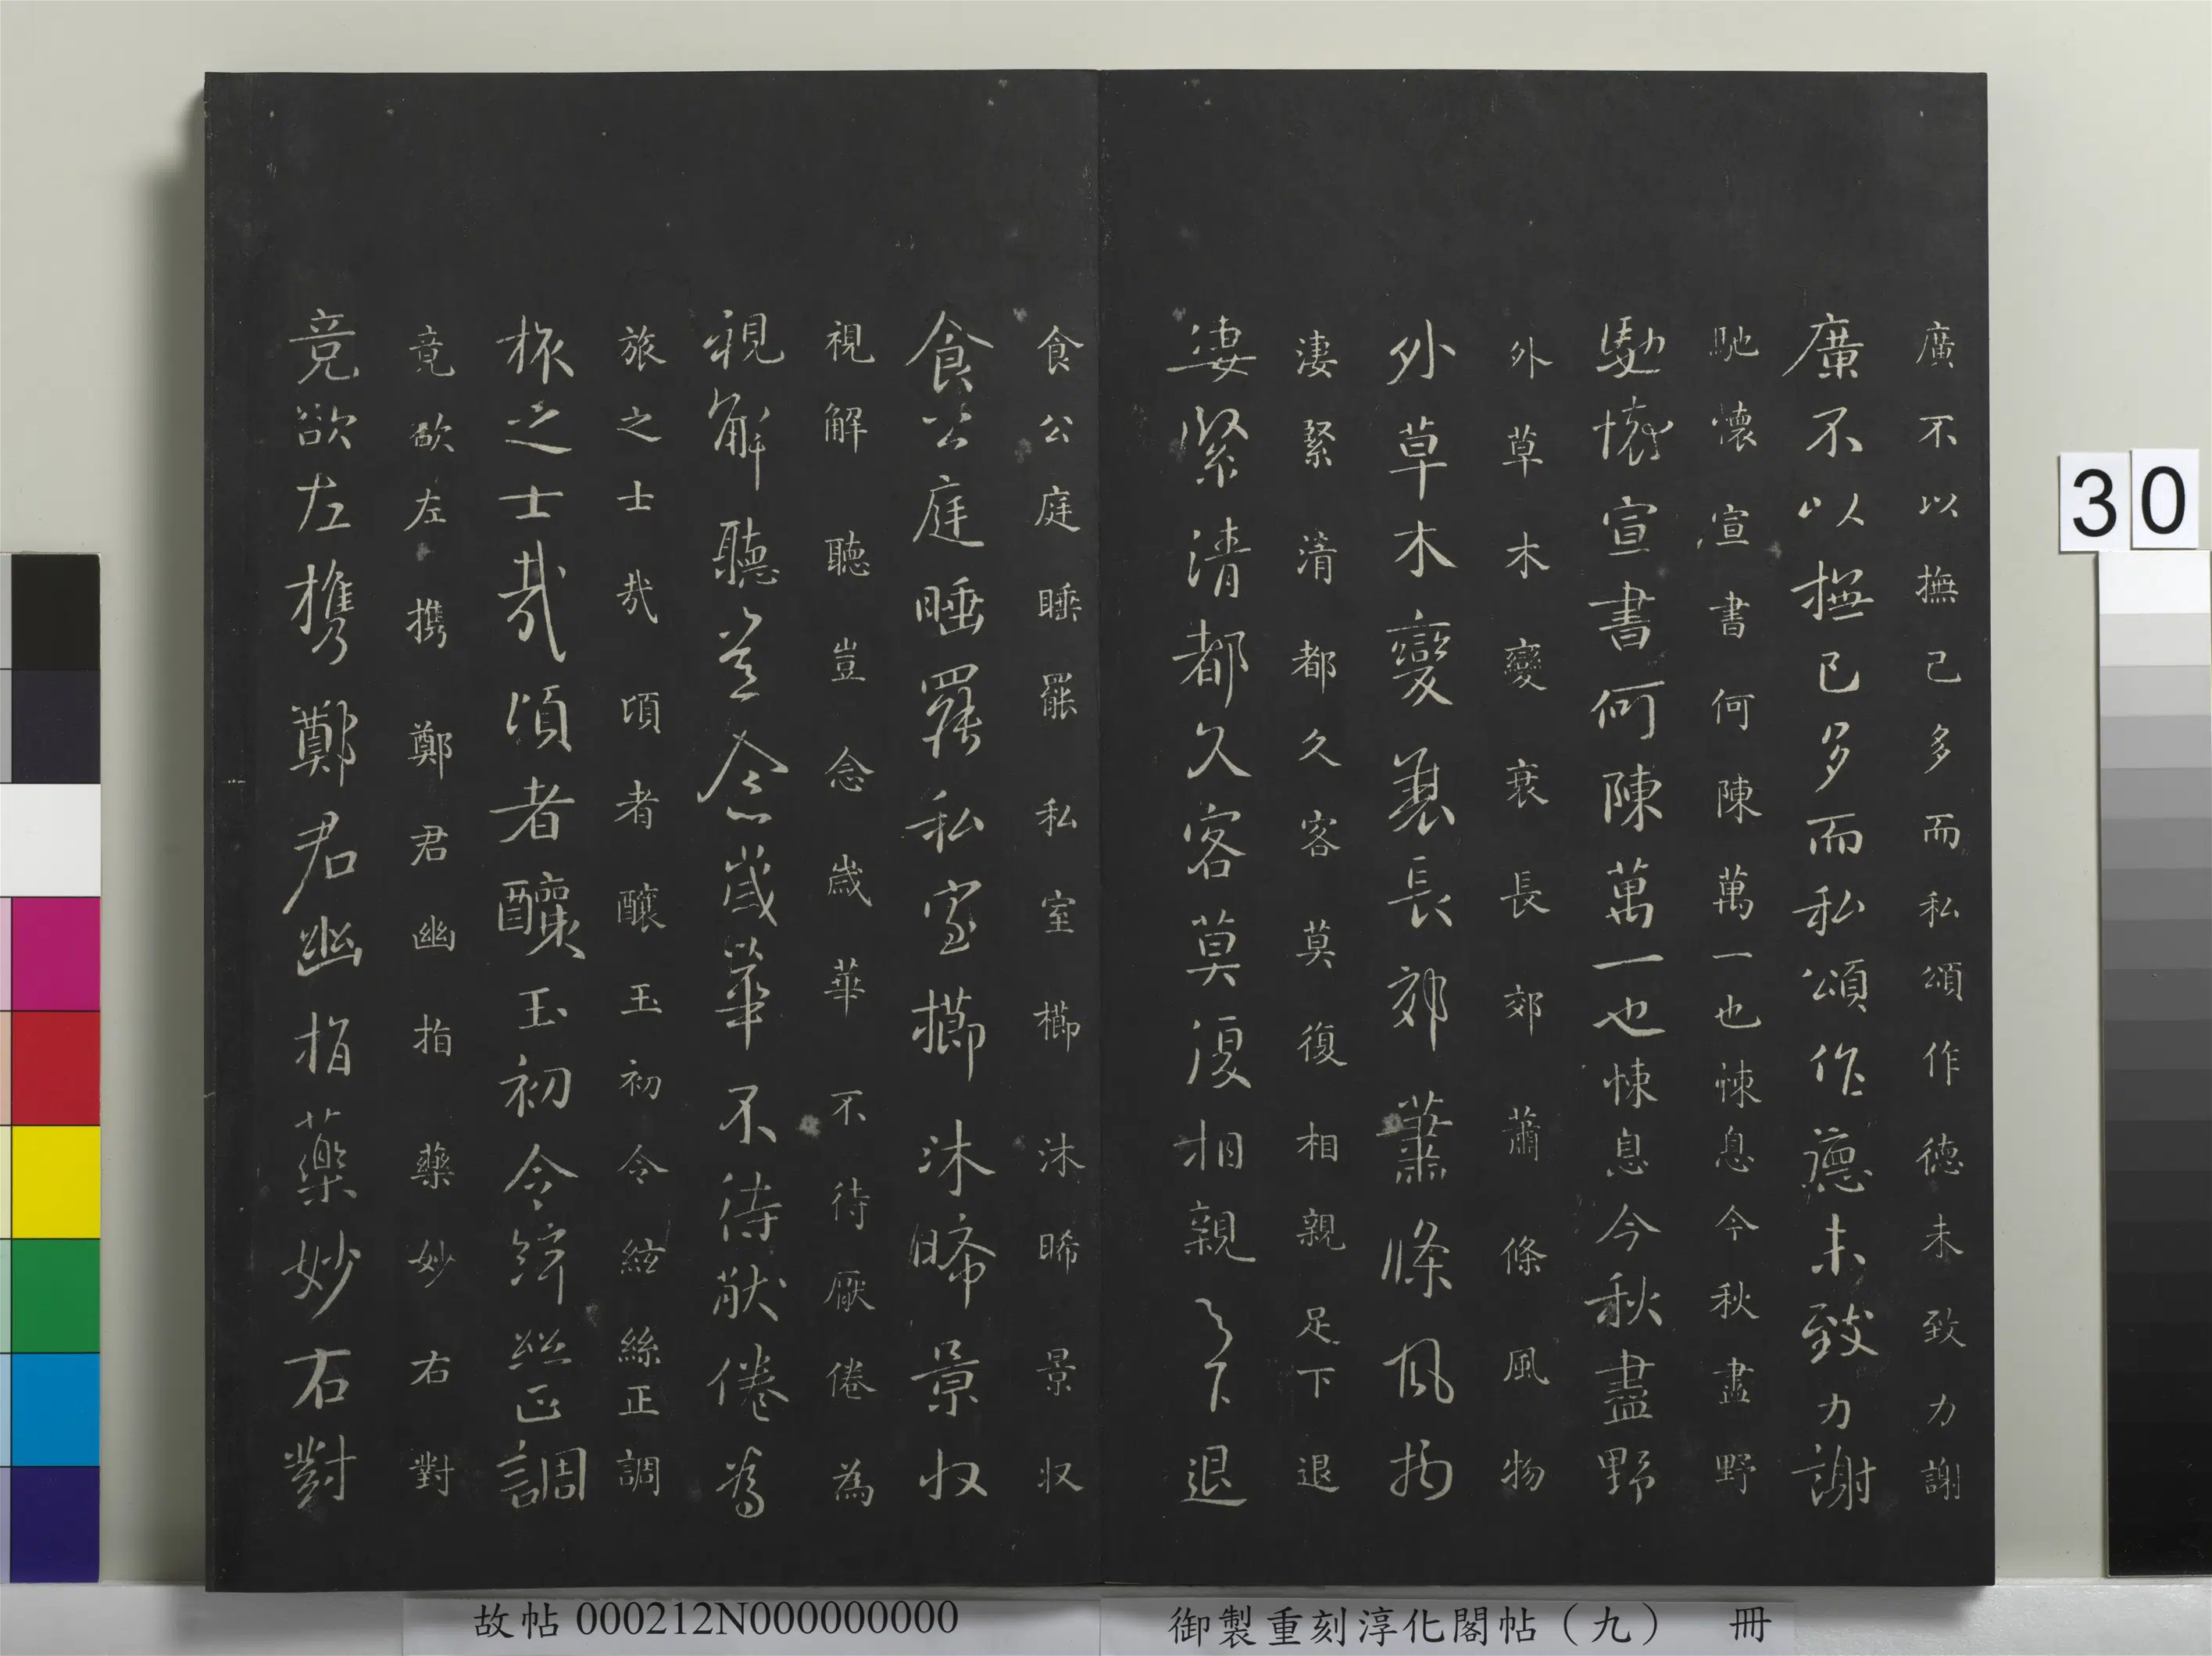 廣不以撫己多而私頌作德未致力謝
廣不以撫己多而私頌作德未致力謝
馳懷宣書何陳萬一也悚息今秋盡野
馳懷宣書何陳萬一也悚息今秋盡野
外草木變衰長郊蕭條風物
外草木變衰長郊蕭條風物
淒緊清都久客莫復相親足下退
淒緊清都久客莫復相親足下退
食公庭睡罷私室櫛沐晞景收
食公庭睡罷私室櫛沐晞景收
視解聽豈念歲華不待厭倦為
視解聽豈念歲華不待厭倦為
旅之士哉頃者釀玉初令絃絲正調
旅之士哉頃者釀玉初令絃絲正調
竟欲左携鄭君幽指藥妙右對
竟欲左携鄭君幽指藥妙右對
30
故帖000212N000000000
御製重刻淳化閣帖（九） 冊